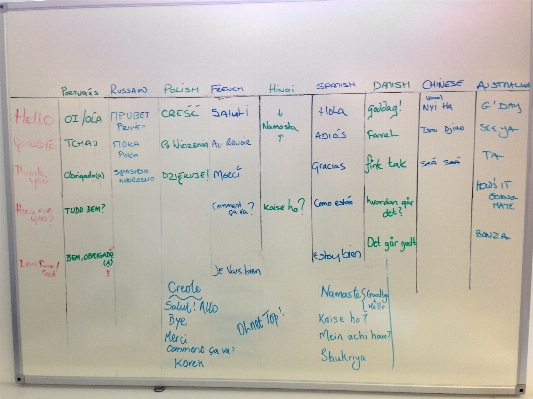 PORTUGÊS RUSSIAN POLISH FRENCH HINDI SPANISH DANISH CHINESE AUSTRALIAN
Hello OI/OLÁ ПРИВЕТ CREŚĆ Salut! ↓ HOLA goddag! NYI HA G'DAY
PRIVET Namasta
GOODBYE TCHAU ПОКА PO WIDZENIA Au Revoir ↑ ADIÓS Farvel TSOU DJIAO SEE YA
POKA
Thank you Obrigado(a) DZIĘKUJE! Merci Gracias fink tak SAA SAA TA
How are you? TUDO BEM? Comment ça va? Kaise ho? Como estás hvordan går det? HOW'S IT GOING MATE
I'm Fine/Good BEM, OBRIGADO (A) Je vais bien estoy bien Det går godt BONZA
Creole
Salut! Allo
Bye
Merci
Comment ça va?
Korek
Oh not Top!!
Namaste {Goodbye
Hello
Kaise ho?
Mein achi hun?
Shukriya